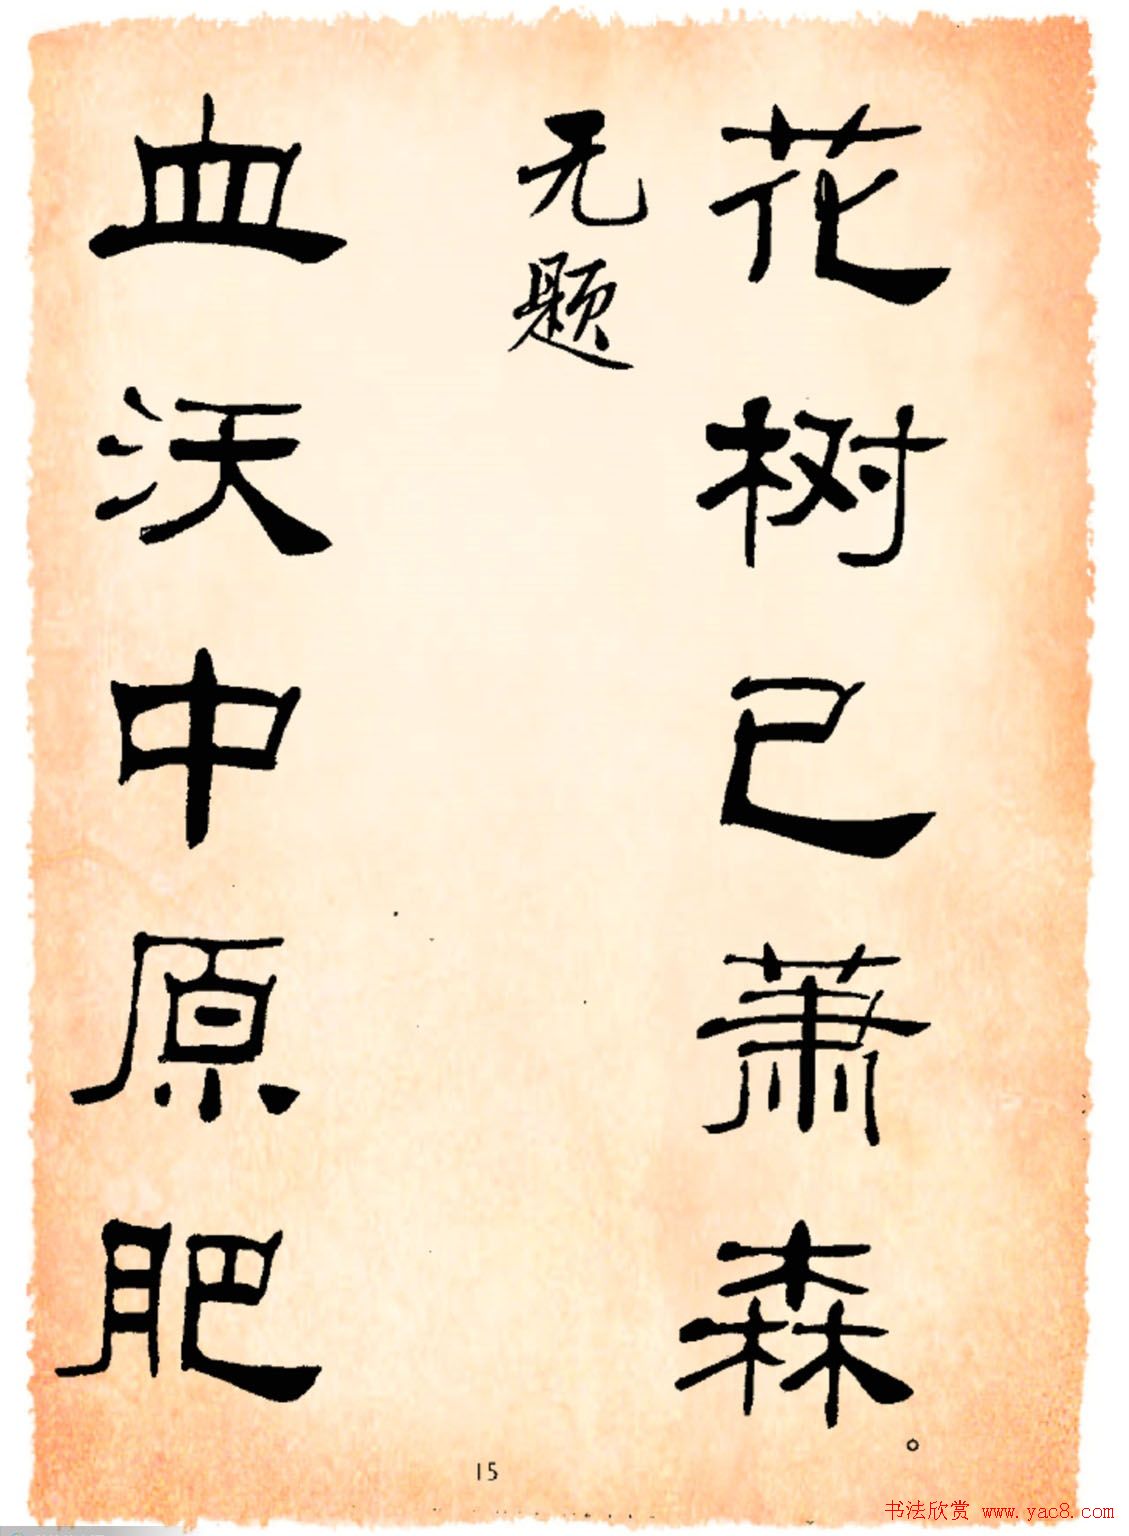 花树已萧森。
无题
血沃中原肥
15
书法欣赏 www.yac8.com